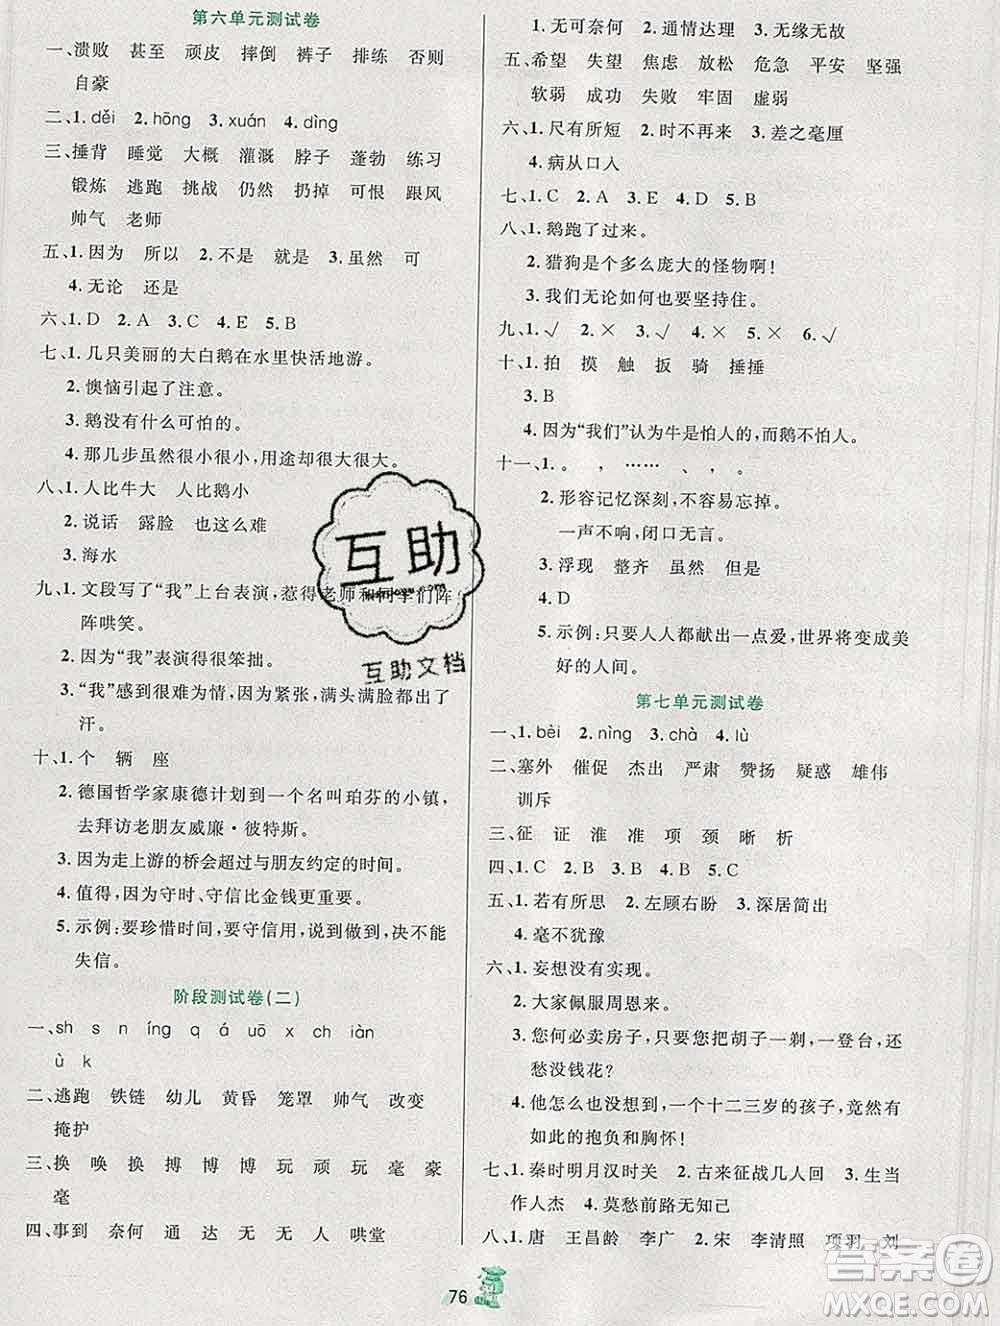 第六单元测试卷
一、溃败 甚至 顽皮 摔倒 裤子 排练 否则
自豪
二、1. děi 2. hōng 3. xuán 4. dìng
三、捶背 睡觉 大概 灌溉 脖子 蓬勃 练习
锻炼 逃跑 挑战 仍然 扔掉 可恨 跟风
帅气 老师
五、1. 因为 所以 2. 不是 就是 3. 虽然 可
4. 无论 还是
六、1. D 2. A 3. C 4. E 5. B
七、1. 几只美丽的大白鹅在水里快活地游。
2. 懊恼引起了注意。
3. 鹅没有什么可怕的。
4. 那几步虽然很小很小，用途却很大很大。
八、1. 人比牛大 人比鹅小
2. 说话 露脸 也这么难
3. 海水
九、1. 文段写了“我”上台表演，惹得老师和同学们阵
阵哄笑。
2. 因为“我”表演得很笨拙。
3. “我”感到很难为情，因为紧张，满头满脸都出了
汗。
十、1. 个 辆 座
2. 德国哲学家康德计划到一个名叫珀芬的小镇，
去拜访老朋友威廉·彼特斯。
3. 因为走上游的桥会超过与朋友约定的时间。
4. 值得，因为守时、守信比金钱更重要。
5. 示例：要珍惜时间，要守信用，说到做到，决不能
失信。
阶段测试卷(二)
一、sh s n íng q á uō x ch iàn
ù k
二、逃跑 铁链 幼儿 黄昏 笼罩 帅气 改变
掩护
三、换 唤 换 搏 博 博 玩 顽 玩 毫 豪
毫
四、事到 奈何 通 达 无 无 人 哄堂
1. 无可奈何 2. 通情达理 3. 无缘无故
五、希望 失望 焦虑 放松 危急 平安 坚强
软弱 成功 失败 牢固 虚弱
六、1. 尺有所短 2. 时不再来 3. 差之毫厘
4. 病从口入
七、1. C 2. A 3. E 4. D 5. B
八、1. 鹅跑了过来。
2. 猎狗是个多么庞大的怪物啊！
3. 我们无论如何也要坚持住。
九、1. √ 2. × 3. √ 4. × 5. × 6. √
十、1. 拍 摸 触 扳 骑 捶捶
3. B
4. 因为“我们”认为牛是怕人的，而鹅不怕人。
十一、1. 。 ， …… 、 。
2. 形容记忆深刻，不容易忘掉。
一声不响，闭口无言。
3. 浮现 整齐 虽然 但是
4. D
5. 示例：只要人人都献出一点爱，世界将变成美
好的人间。
第七单元测试卷
一、1. bèi 2. nìng 3. chà 4. lù
二、塞外 催促 杰出 严肃 赞扬 疑惑 雄伟
训斥
三、征 证 准 准 项 颈 晰 析
四、1. C 2. B 3. B 4. C 5. B
五、1. 若有所思 2. 左顾右盼 3. 深居简出
4. 毫不犹豫
六、1. 妄想没有实现。
2. 大家佩服周恩来。
3. 您何必卖房子，只要您把胡子一剃，一登台，还
愁没钱花？
4. 他怎么也没想到，一个十二三岁的孩子，竟然有
如此的抱负和胸怀！
七、1. 秦时明月汉时关 2. 古来征战几人回 3. 生当
作人杰 4. 莫愁前路无知己
八、1. 唐 王昌龄 李广 2. 宋 李清照 项羽 刘
76
互助
互助文档
答案圈
MXQE.COM